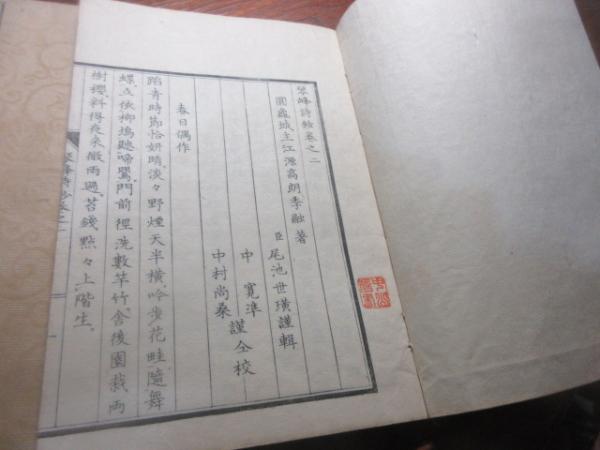 琴峰詩鈔卷之二
圓龜城主江源高朗季融 著
臣 尾池世璜謹輯
中 寬準
謹仝校
中村尚桑
春日偶作
踏青時節恰妍晴。淡々野煙天半橫。吟步花畦隨舞
蝶。立依柳塢聽啼鶯。門前裡洗數竿竹。舍後園栽兩
樹櫻。料得夜來微雨過。苔錢點々上階生。